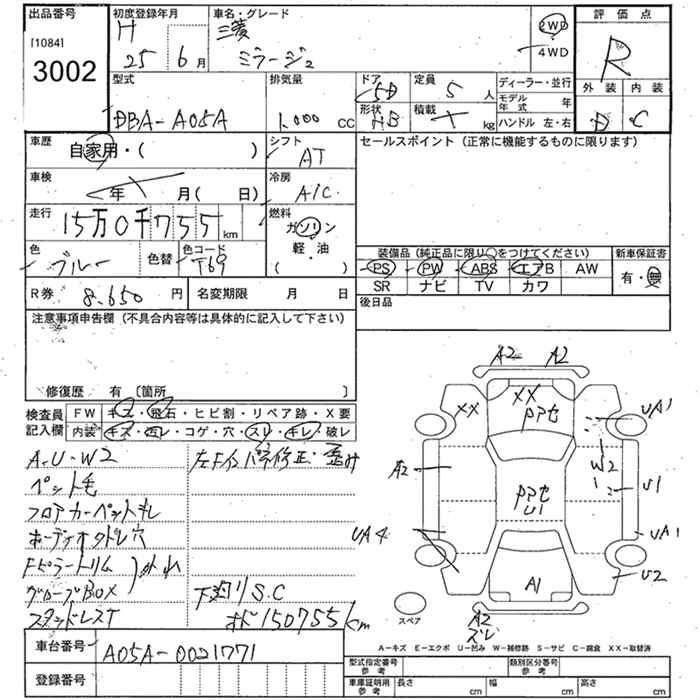 出品番号
[1084]
3002
初度登録年月
H
25 6月
車名・グレード
三菱
ミラージュ
2WD
4WD
評価点
R
外装 内装
D C
型式
DBA-A05A
排気量
1,000 cc
ドア
5D
形状
HB
定員
5 人
積載
kg
ディーラー・並行
モデル年式 年
ハンドル 左・右
車歴
自家用・( )
シフト
AT
セールスポイント (正常に機能するものに限ります)
車検
年 月( 日)
冷房
A/C
走行
15万0千755 km
燃料
ガソリン
軽・油
( )
色
ブルー
色替
色コード
T69
装備品(純正品に限り○をつけてください)
新車保証書
PS PW ABS エアB AW
SR ナビ TV カワ
有・無
R券
8,650円
名変期限 月 日
後日品
注意事項申告欄 (不具合内容等は具体的に記入して下さい)
修復歴 有 〔箇所 〕
検査員記入欄
FW キズ・飛石・ヒビ割・リペア跡・X要
内装 キズ・汚レ・コゲ・穴・スレ・キレ・破レ
A・U・W2
ペット毛
フロアカーペットキレ
オーディオクドレ穴
Fピラートリム
グローブBOX
外れ
スタッドレスT
左Fインパネ修正・歪み
下廻りS.C
150755km
A2 A2
XX XX
ppt
UA1
W2
A2
ppt
U1
U1
UA4
UA1
U2
A1
A2
ズレ
スペア
A-キズ E-エクボ U-凹み W-補修跡 S-サビ C-腐食 XX-取替済
車台番号
A05A-0021771
登録番号
型式指定番号 参考
類別区分番号 参考
車庫証明用 参考
長さ cm 幅 cm 高さ cm